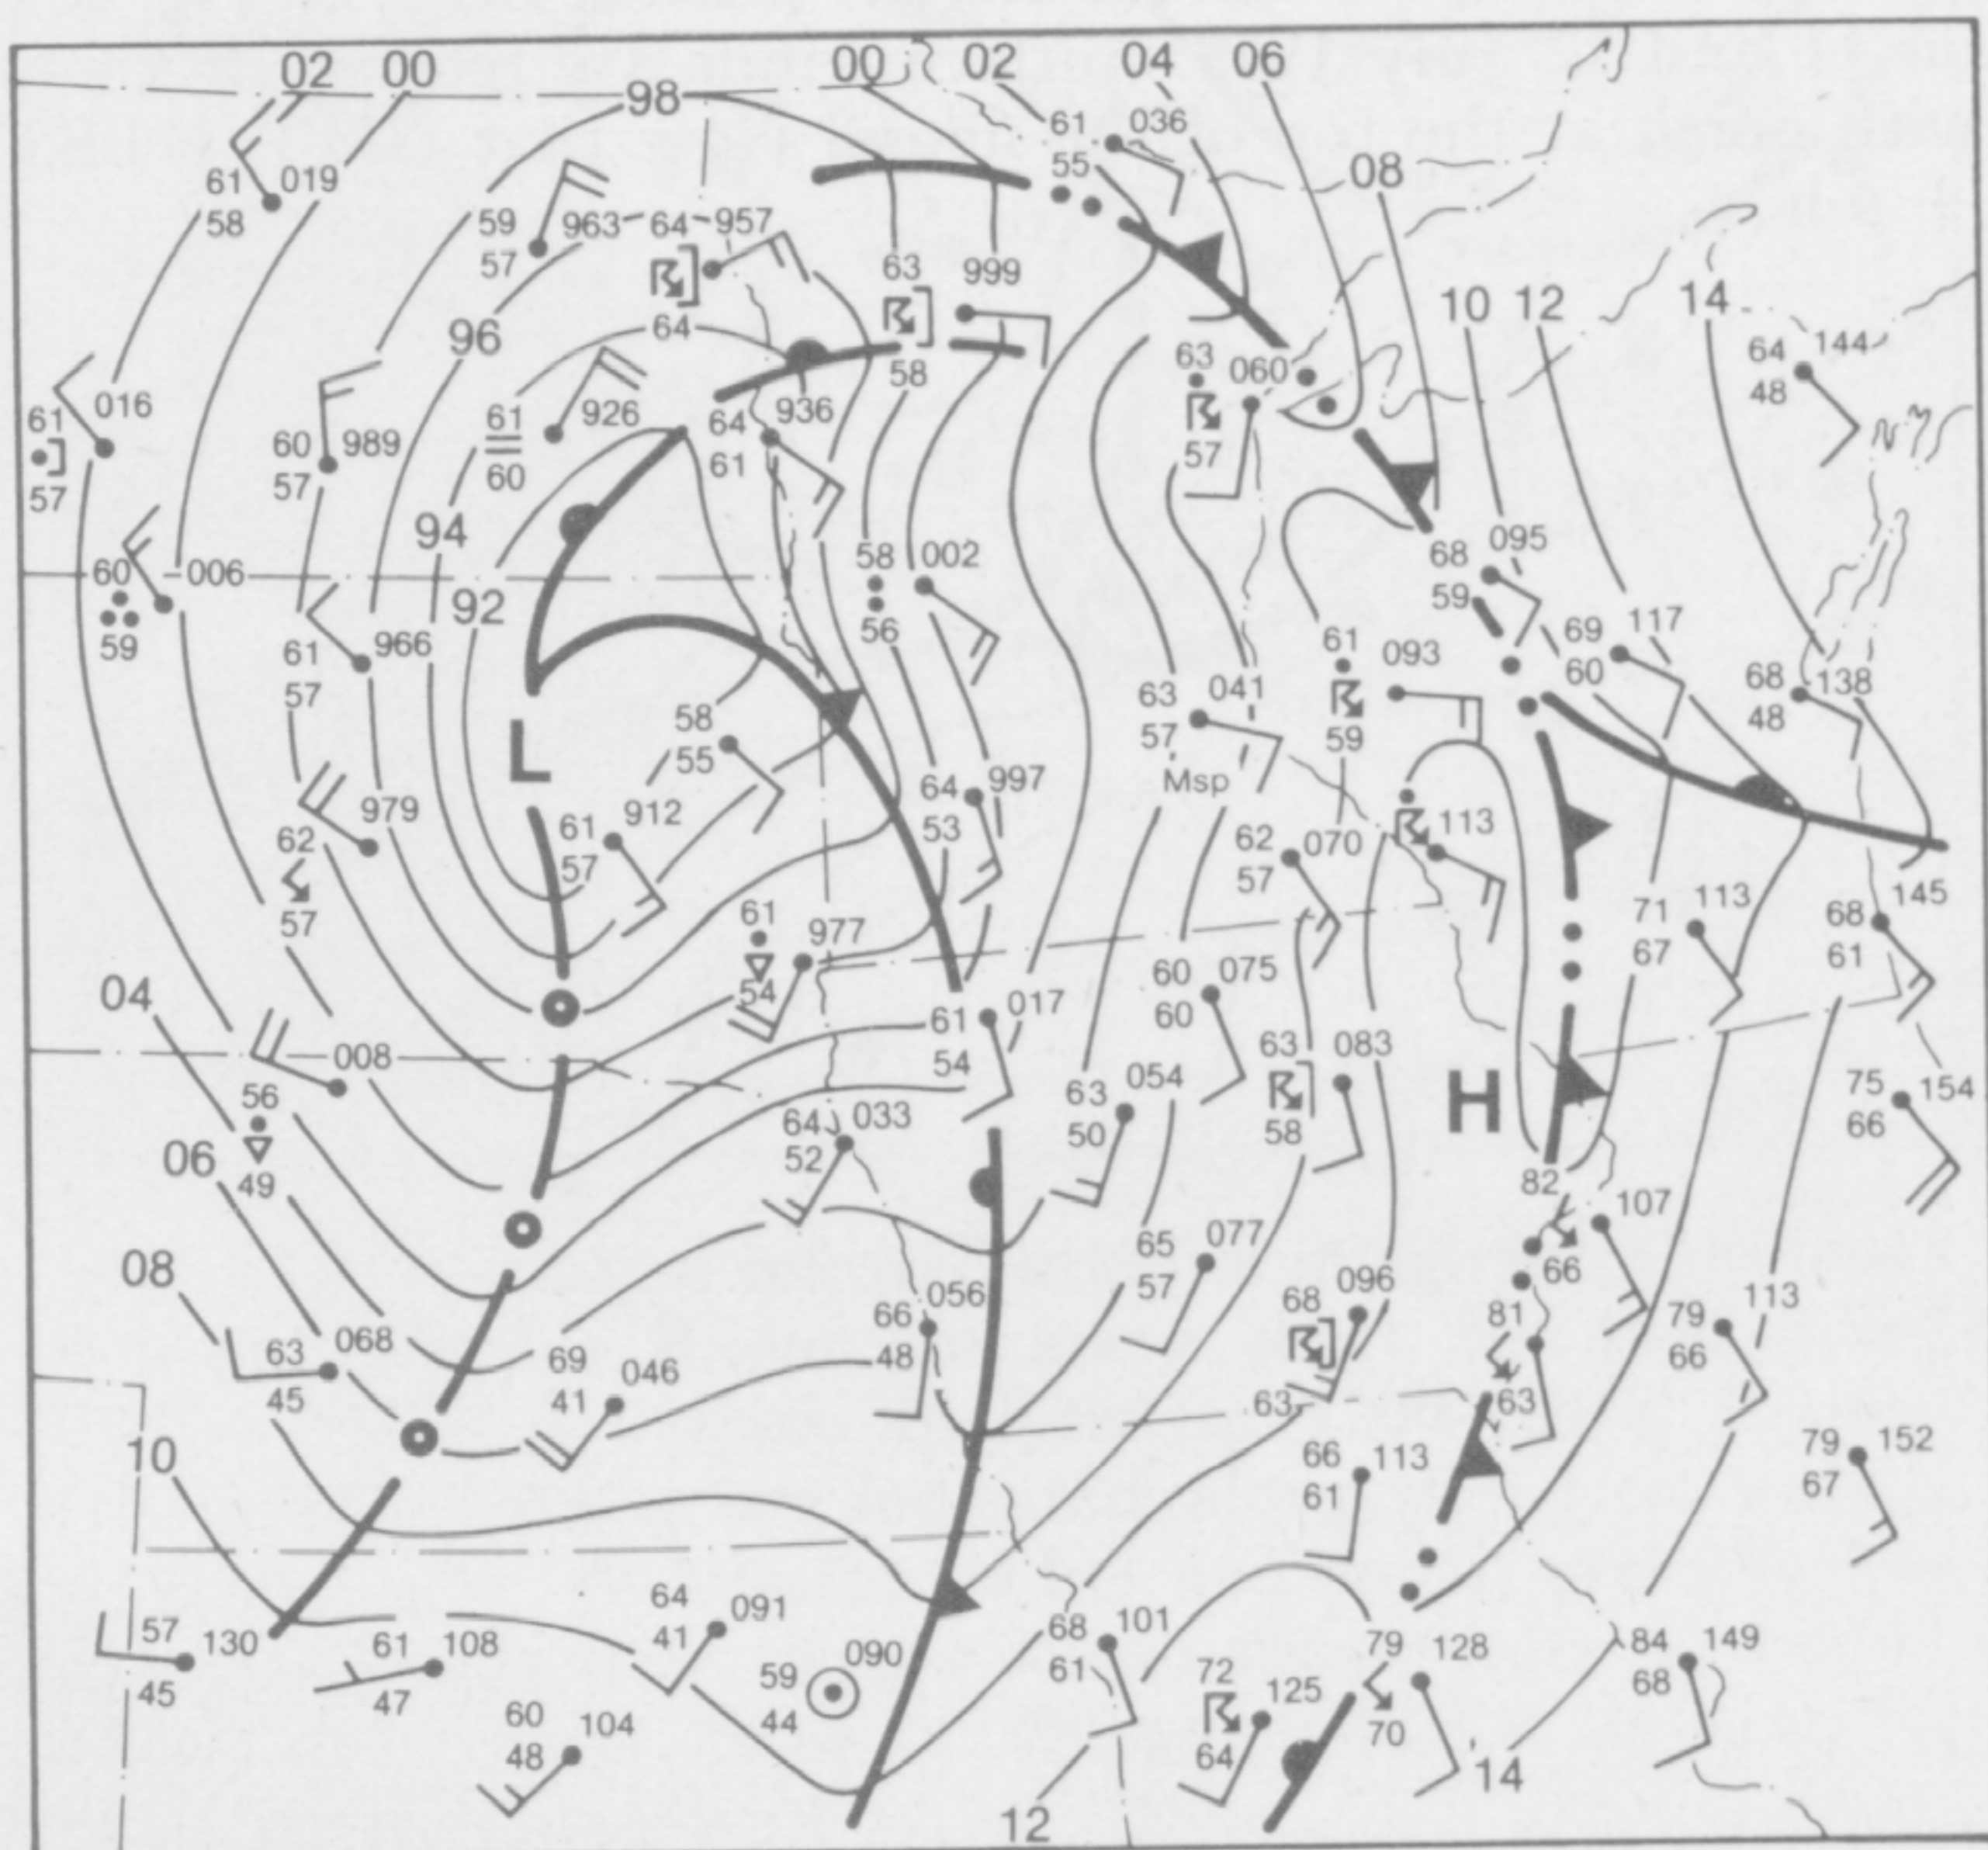 02 00 98 00 02 04 06
61 036
55
08
61 019
58
59 963
57
64 957
64
63 999
58
10 12 14
64 144
48
96
63 060
57
61 016
57
60 989
57
61 926
60
64 936
61
94
92
60 006
59
58 002
56
68 095
59
69 117
60
61 966
57
61 093
59
68 138
48
63 041
57
Msp
L
58
55
64 997
53
62 979
57
61 912
57
62 070
57
113
71 113
67
68 145
61
61 977
54
04
60 075
60
61 017
54
63 083
58
H
008
56
49
63 054
50
75 154
66
06
64 033
52
82 107
66
08
65 077
57
66 056
48
68 096
63
81
63
79 113
66
63 068
45
69 046
41
10
66 113
61
79 152
67
57 130
45
61 108
47
64 091
41
59 090
44
68 101
61
79 128
70
84 149
68
60 104
48
72 125
64
14
12